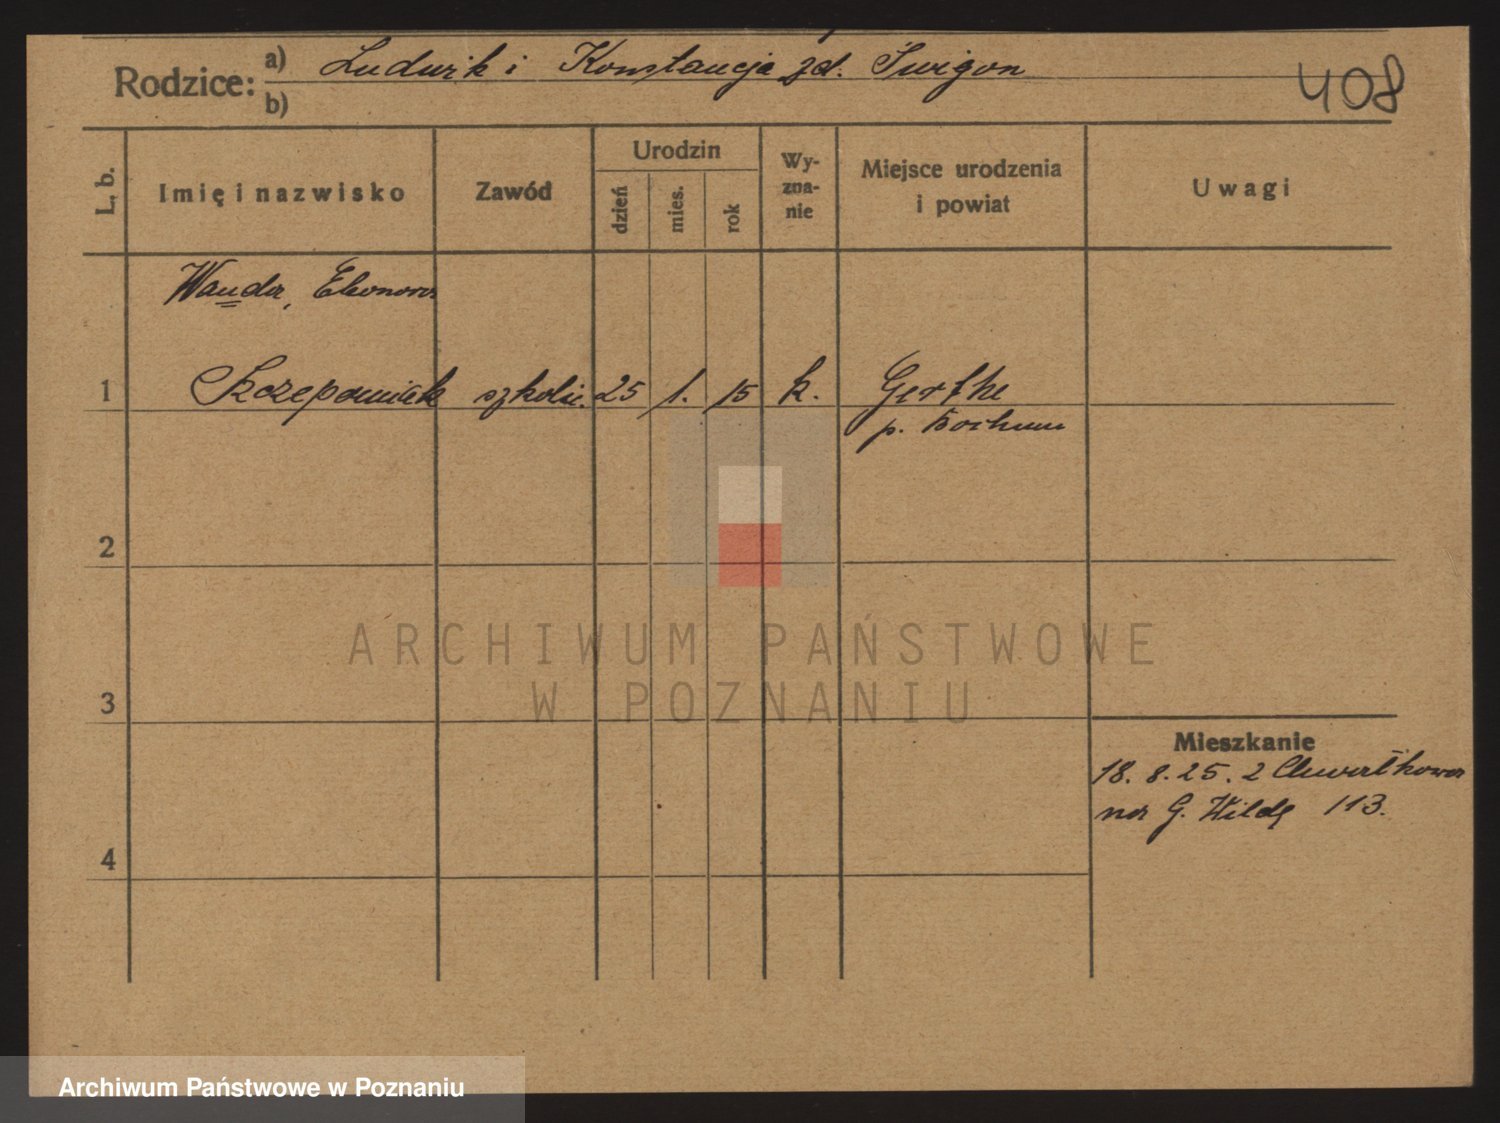 Rodzice: a) Ludwik i Konstancja zd. Świgon
b)
408
L. b.
Imię i nazwisko
Zawód
Urodzin
dzień
mies.
rok
Wy-
zna-
nie
Miejsce urodzenia
i powiat
Uwagi
Wanda, Eleonora
1 Szczepaniak szkoln. 25 1. 15 k. Gerthe
p. Bochum
2
3
4
Mieszkanie
18. 8. 25. z Chwałkowa
na G. Wildę 113.
ARCHIWUM PAŃSTWOWE
W POZNANIU
Archiwum Państwowe w Poznaniu